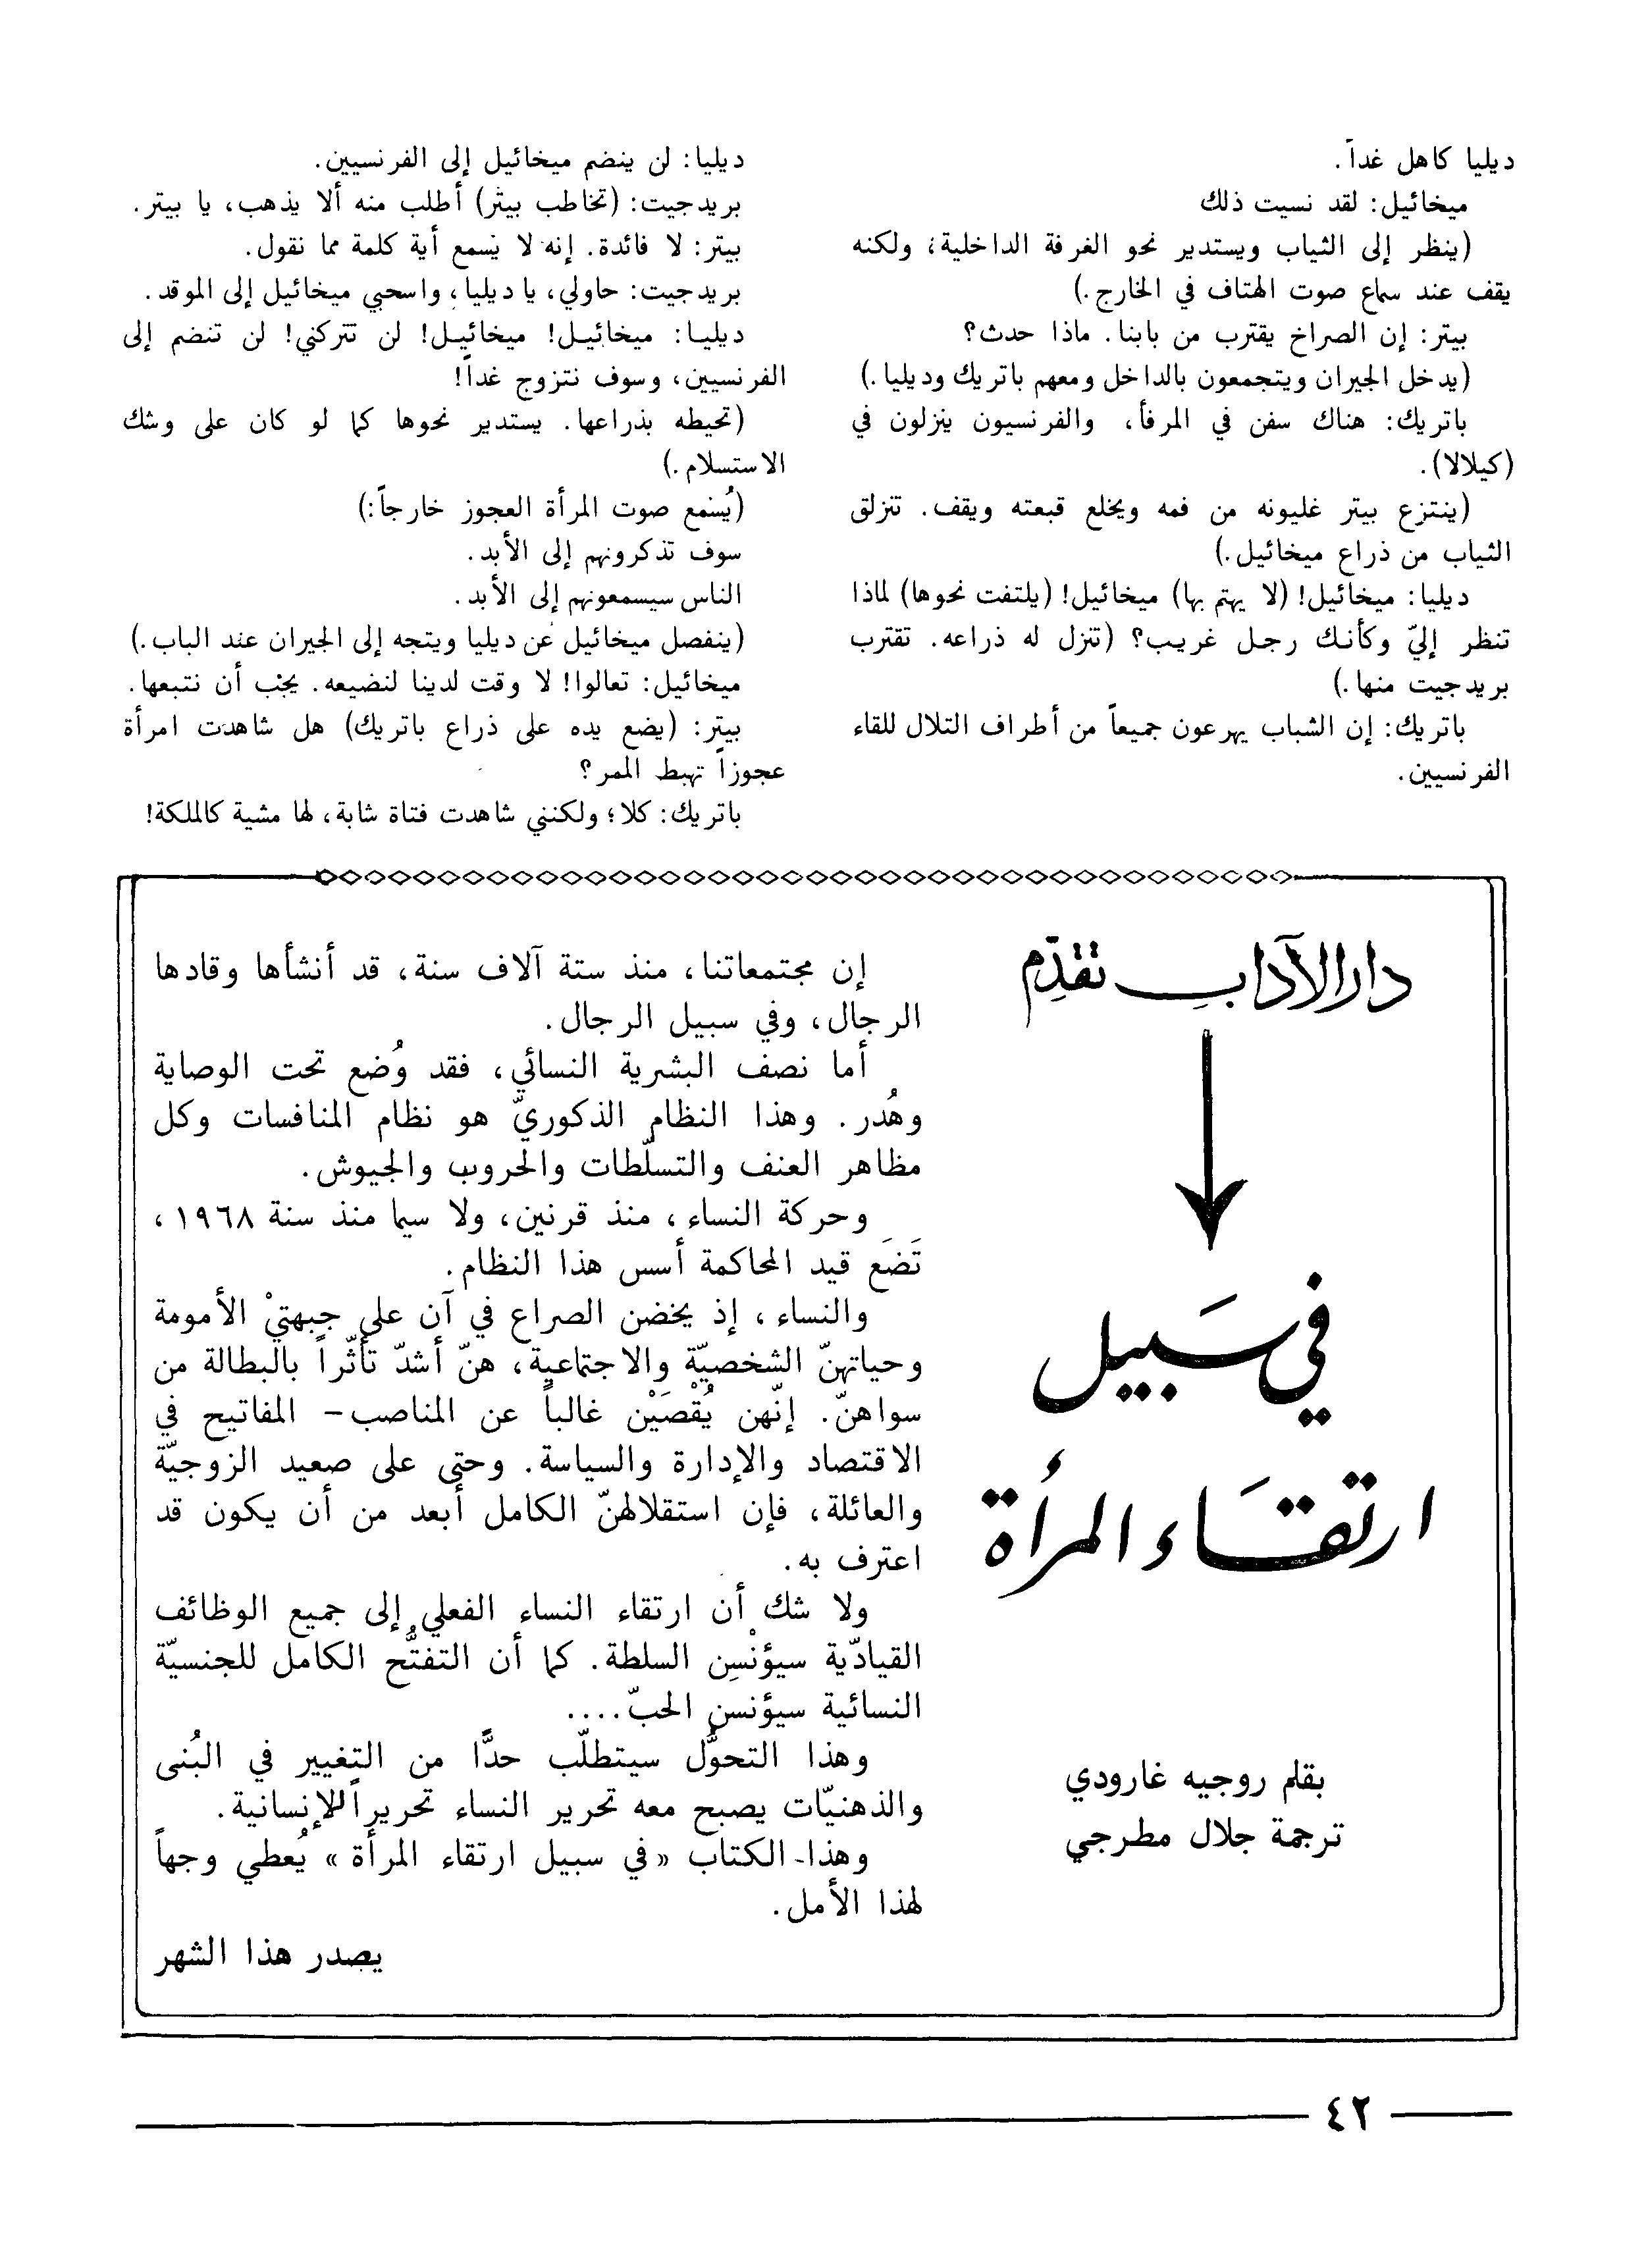 ديليا كاهل غداً.
ميخائيل: لقد نسيت ذلك
(ينظر إلى الثياب ويستدير نحو الغرفة الداخلية، ولكنه
يقف عند سماع صوت الهتاف في الخارج.)
بيتر: إن الصراخ يقترب من بابنا. ماذا حدث؟
(يدخل الجيران ويتجمعون بالداخل ومعهم باتريك وديليا.)
باتريك: هناك سفن في المرفأ، والفرنسيون ينزلون في
(كيلالا).
(ينتزع بيتر غليونه من فمه ويخلع قبعته ويقف. تنزلق
الثياب من ذراع ميخائيل.)
ديليا: ميخائيل! (لا يهتم بها) ميخائيل! (يلتفت نحوها) لماذا
تنظر إليّ وكأنك رجل غريب؟ (تنزل له ذراعه. تقترب
بريدجيت منها.)
باتريك: إن الشباب يهرعون جميعاً من أطراف التلال للقاء
الفرنسيين.
ديليا: لن ينضم ميخائيل إلى الفرنسيين.
بريدجيت: (تخاطب بيتر) أطلب منه ألا يذهب، يا بيتر.
بيتر: لا فائدة. إنه لا يسمع أية كلمة مما نقول.
بريدجيت: حاولي، يا ديليا، واسحبي ميخائيل إلى الموقد.
ديليا: ميخائيل! ميخائيل! لن تتركني! لن تنضم إلى
الفرنسيين، وسوف نتزوج غداً!
(تحيطه بذراعها. يستدير نحوها كما لو كان على وشك
الاستسلام.)
(يُسمع صوت المرأة العجوز خارجاً:)
سوف تذكرونهم إلى الأبد.
الناس سيسمعونهم إلى الأبد.
(ينفصل ميخائيل عن ديليا ويتجه إلى الجيران عند الباب.)
ميخائيل: تعالوا! لا وقت لدينا لنضيعه. يجب أن نتبعها.
بيتر: (يضع يده على ذراع باتريك) هل شاهدت امرأة
عجوزاً تهبط الممر؟
باتريك: كلا؛ ولكنني شاهدت فتاة شابة، لها مشية كالملكة!
دار الآداب تقدّم
في سَبيل
ارتقَاء المرأة
بقلم روجيه غارودي
ترجمة جلال مطرجي
إن مجتمعاتنا، منذ ستة آلاف سنة، قد أنشأها وقادها
الرجال، وفي سبيل الرجال.
أما نصف البشرية النسائي، فقد وُضع تحت الوصاية
وهُدر. وهذا النظام الذكوريّ هو نظام المنافسات وكل
مظاهر العنف والتسلّطات والحروب والجيوش.
وحركة النساء، منذ قرنين، ولا سيما منذ سنة ١٩٦٨،
تَضَع قيد المحاكمة أسس هذا النظام.
والنساء، إذ يخضن الصراع في آن على جبهتيْ الأمومة
وحياتهنّ الشخصيّة والاجتماعية، هنّ أشدّ تأثّراً بالبطالة من
سواهنّ. إنّهن يُقْصَيْن غالباً عن المناصب - المفاتيح في
الاقتصاد والإدارة والسياسة. وحتى على صعيد الزوجيّة
والعائلة، فإن استقلالهنّ الكامل أبعد من أن يكون قد
اعترف به.
ولا شك أن ارتقاء النساء الفعلي إلى جميع الوظائف
القيادّية سيؤنْسِن السلطة. كما أن التفتُّح الكامل للجنسيّة
النسائية سيؤنسن الحبّ....
وهذا التحوُّل سيتطلّب حدًّا من التغيير في البُنى
والذهنيّات يصبح معه تحرير النساء تحريراً للإنسانية.
وهذا الكتاب «في سبيل ارتقاء المرأة» يُعطي وجهاً
لهذا الأمل.
يصدر هذا الشهر
٤٢